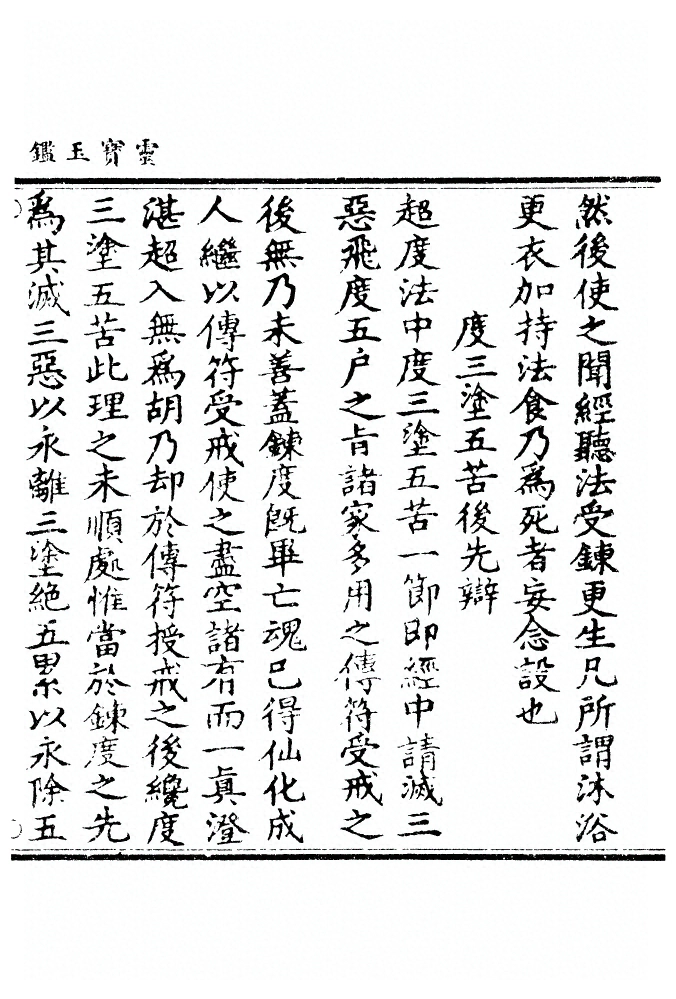 靈寶玉鑑
然後使之聞經聽法受鍊更生凡所謂沐浴
更衣加持法食乃爲死者妄念設也
度三塗五苦後先辯
超度法中度三塗五苦一節即經中請滅三
惡飛度五戶之㫖諸家多用之傳符受戒之
後無乃未善蓋鍊度旣畢亡魂已得仙化成
人繼以傳符受戒使之盡空諸有而一眞澄
湛超入無爲胡乃却於傳符授戒之後纔度
三塗五苦此理之未順處惟當於鍊度之先
爲其滅三惡以永離三塗絶五累以永除五